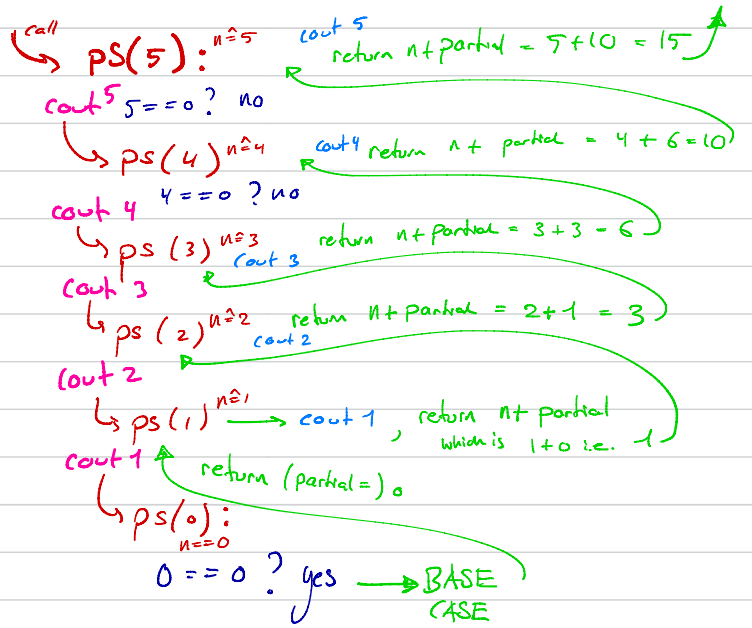 call
ps(5): n≙5 cout 5 return n+partial = 5+10 = 15
cout 5 5==0? no
ps(4) n≙4 cout 4 return n+ partial = 4 + 6 = 10
4==0 ? no
cout 4
ps(3) n≙3 return n+partial = 3+3 = 6
cout 3
cout 3
ps(2) n≙2 return n+partial = 2+1 = 3
cout 2
cout 2
ps(1) n≙1 cout 1, return n+ partial
which is 1+0 i.e. 1
cout 1
return (partial=) 0
ps(0):
n==0
0 == 0 ? yes BASE
CASE